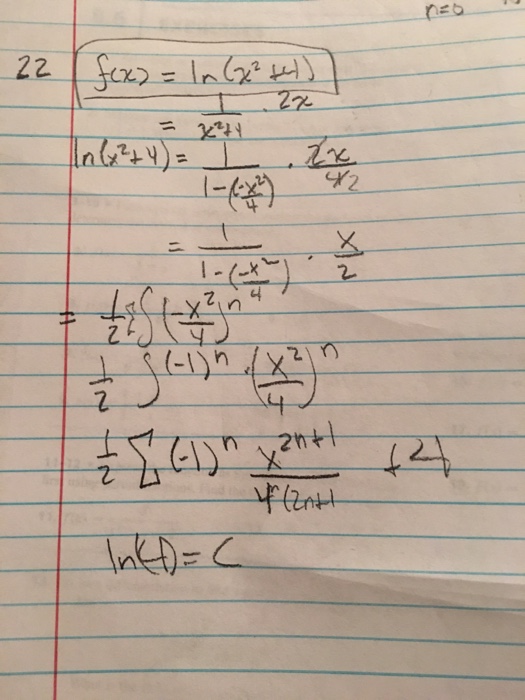 n=0
22 f(x) = ln(x²+4)
= 1/(x²+4) · 2x
ln(x²+4) = 1/(1-(-x²/4)) · 2x/4 2
= 1/(1-(-x²/4)) · x/2
= 1/2 ∫ (-x²/4)ⁿ
1/2 ∫ (-1)ⁿ · (x²/4)ⁿ
1/2 Σ (-1)ⁿ x²ⁿ⁺¹/(4ⁿ(2n+1
ln(4) = C